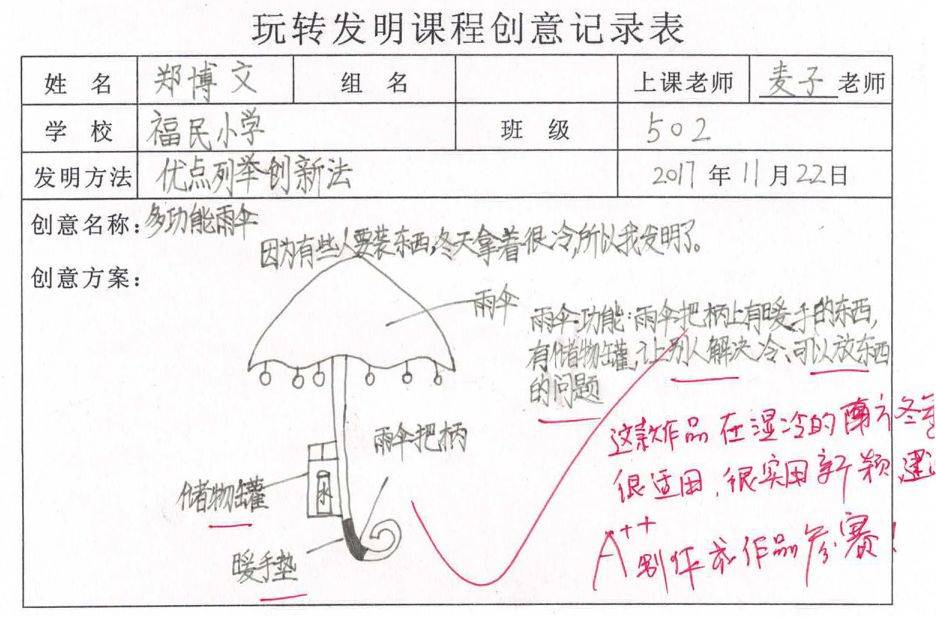 玩转发明课程创意记录表
姓 名 郑博文 组 名 上课老师 麦子 老师
学 校 福民小学 班 级 502
发明方法 优点列举创新法 2017 年 11 月 22 日
创意名称：多功能雨伞
因为有些人要装东西，冬天拿着很冷，所以我发明了。
创意方案：
雨伞
雨伞功能：雨伞把柄上有暖手的东西，
有储物罐，让别人解决冷、可以放东西
的问题
雨伞把柄
储物罐
水
暖手垫
这款作品在湿冷的南方冬
很适用，很实用新颖，建
A++
制作成作品参赛！